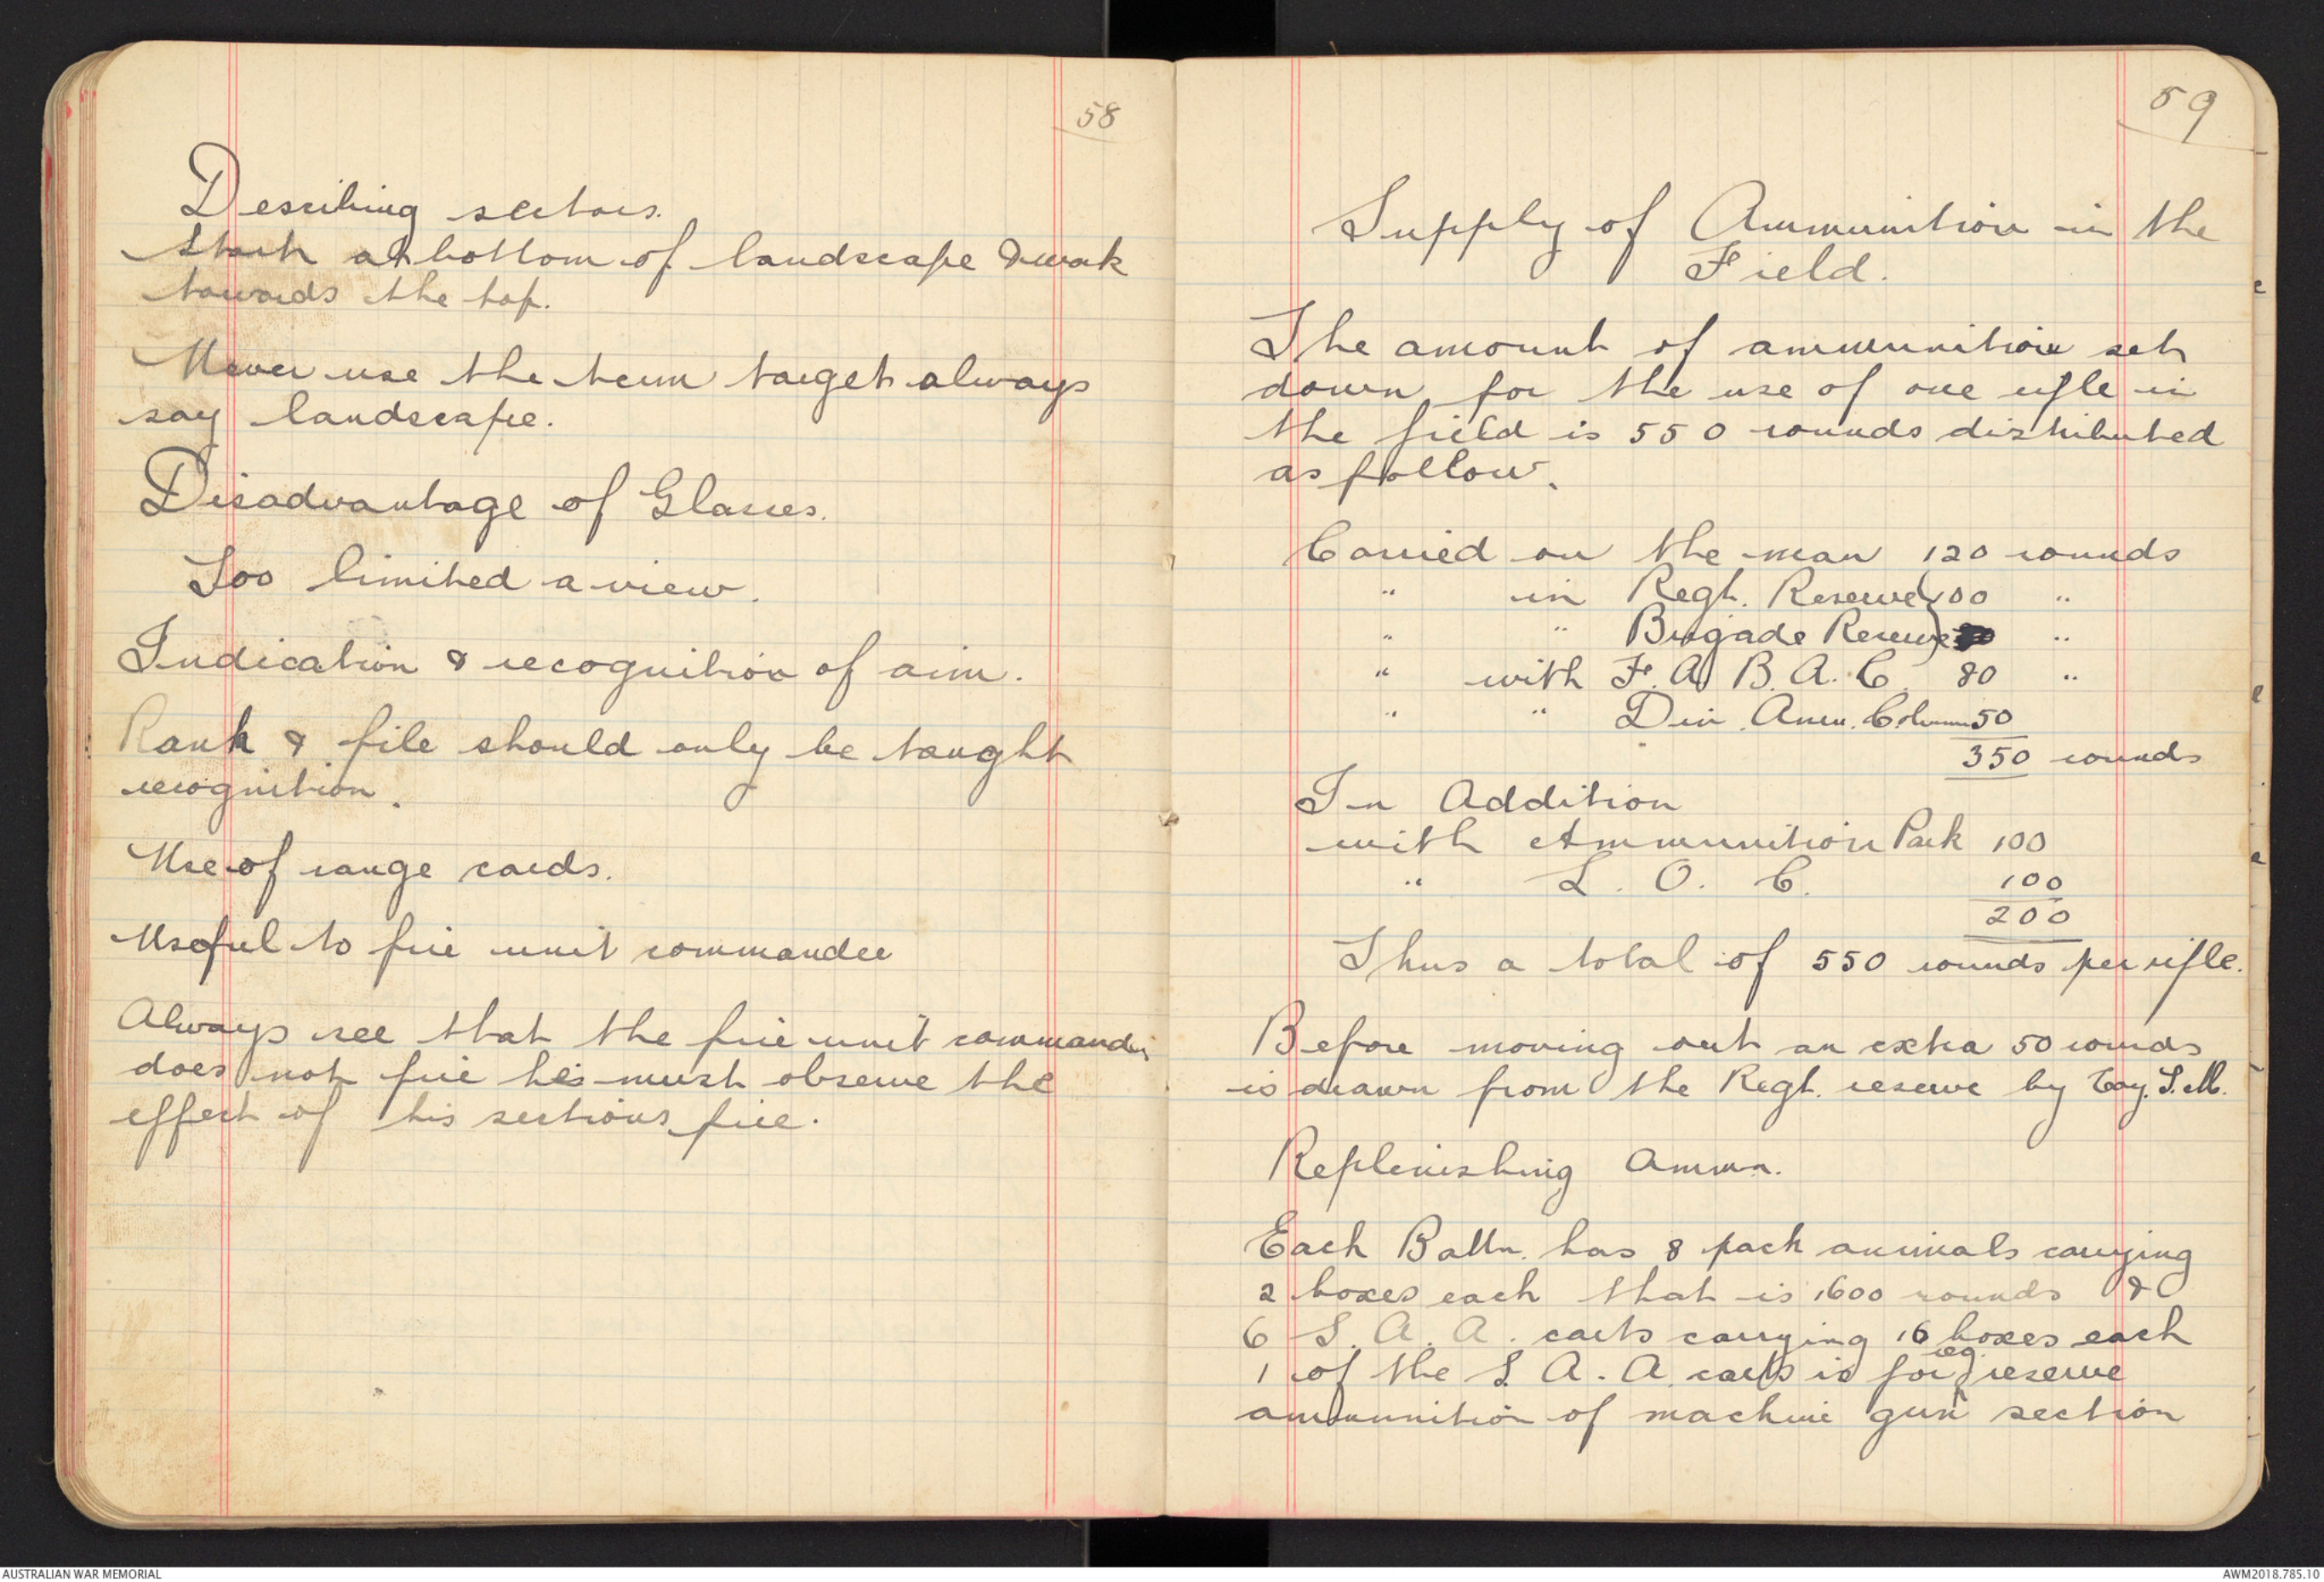 58
Describing sectors.
Start at bottom of landscape & work
towards the top.
Never use the term target always
say landscape.
Disadvantage of Glasses.
Too limited a view.
Indication & recognition of aim.
Rank & file should only be taught
recognition.
Use of range cards.
Useful to fire unit commander
Always see that the fire unit commander
does not fire he must observe the
effect of his sections fire.
59
Supply of Ammunition in the
Field.
The amount of ammunition set
down for the use of one rifle in
the field is 550 rounds distributed
as follow.
Carried on the man 120 rounds
" in Regt. Reserve) 100 "
" " Brigade Reserve) "
" with F. A. B. A. C. 80 "
" " Div. Amm. Column 50
350 rounds
In Addition
with Ammunition Park 100
" L. O. C. 100
200
Thus a total of 550 rounds per rifle.
Before moving out an extra 50 rounds
is drawn from the Regt. reserve by Coy. S. M.
Replenishing Ammn.
Each Battn. has 8 pack animals carrying
2 boxes each that is 1600 rounds &
6 S. A. A. carts carrying 16 boxes each
1 of the S. A. A. carts is for reg. reserve
ammunition of machine gun section
AUSTRALIAN WAR MEMORIAL
AWM2018.785.10